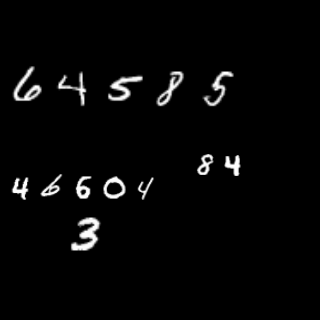 64585
84
46604
3